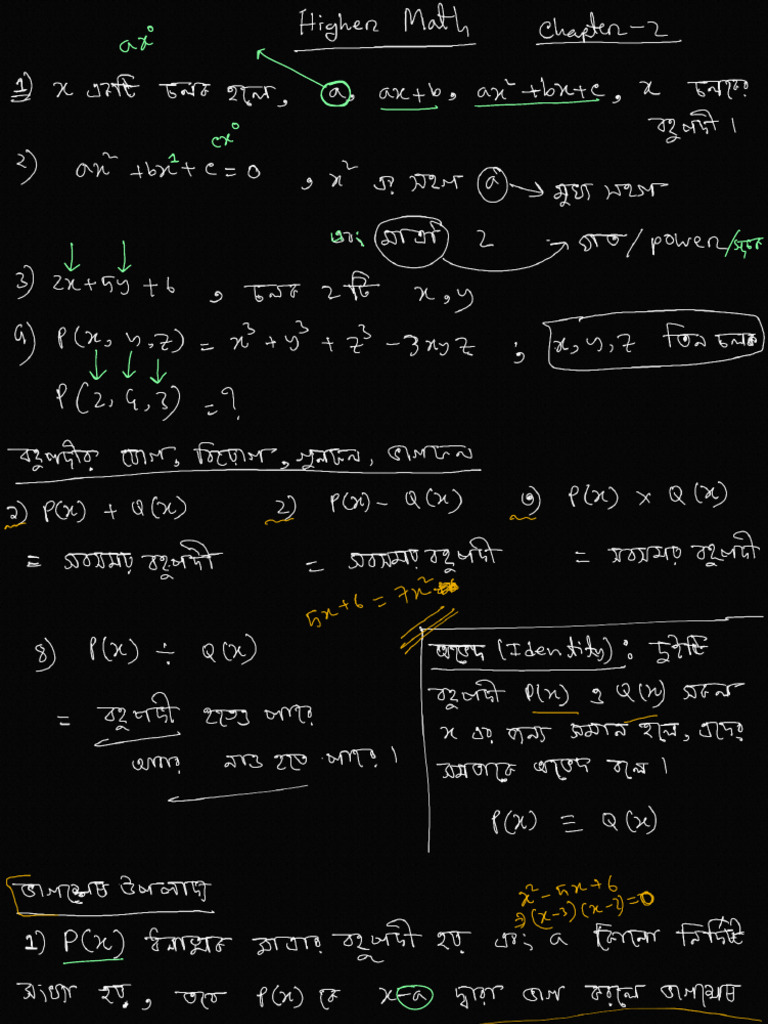 Higher Math Chapter-2
ax⁰
1) x একটি চলক হলে, a, ax+b, ax²+bx+c, x চলকের
বহুপদী।
cx⁰
২) ax²+bx¹+c=0, x² এর সহগ a → মুখ্য সহগ
এবং মাত্রা 2 → ঘাত/power/সূচক
3) 2x+5y+6, চলক 2টি x,y
৪) P(x, y, z) = x³+y³+z³-3xyz ; x,y,z তিন চলক
P(2, 4, 3) = ?
বহুপদীর যোগ, বিয়োগ, গুনফল, ভাগফল
১) P(x) + Q(x) ২) P(x) - Q(x) ৩) P(x) × Q(x)
= সবসময় বহুপদী = সবসময় বহুপদী = সবসময় বহুপদী
5x+6 = 7x²
৪) P(x) ÷ Q(x)
= বহুপদী হতেও পারে
আবার নাও হতে পারে।
অভেদ (Identity): দুইটি
বহুপদী P(x) ও Q(x) সকল
x এর জন্য সমান হলে, এদের
সমতাকে অভেদ বলে।
P(x) ≡ Q(x)
ভাগশেষ উপপাদ্য
x²-5x+6
⇒(x-3)(x-2)=0
1) P(x) ধনাত্মক মাত্রার বহুপদী হয় এবং a কোনো নির্দিষ্ট
সংখ্যা হয়, তবে P(x) কে x-a দ্বারা ভাগ করলে ভাগশেষ